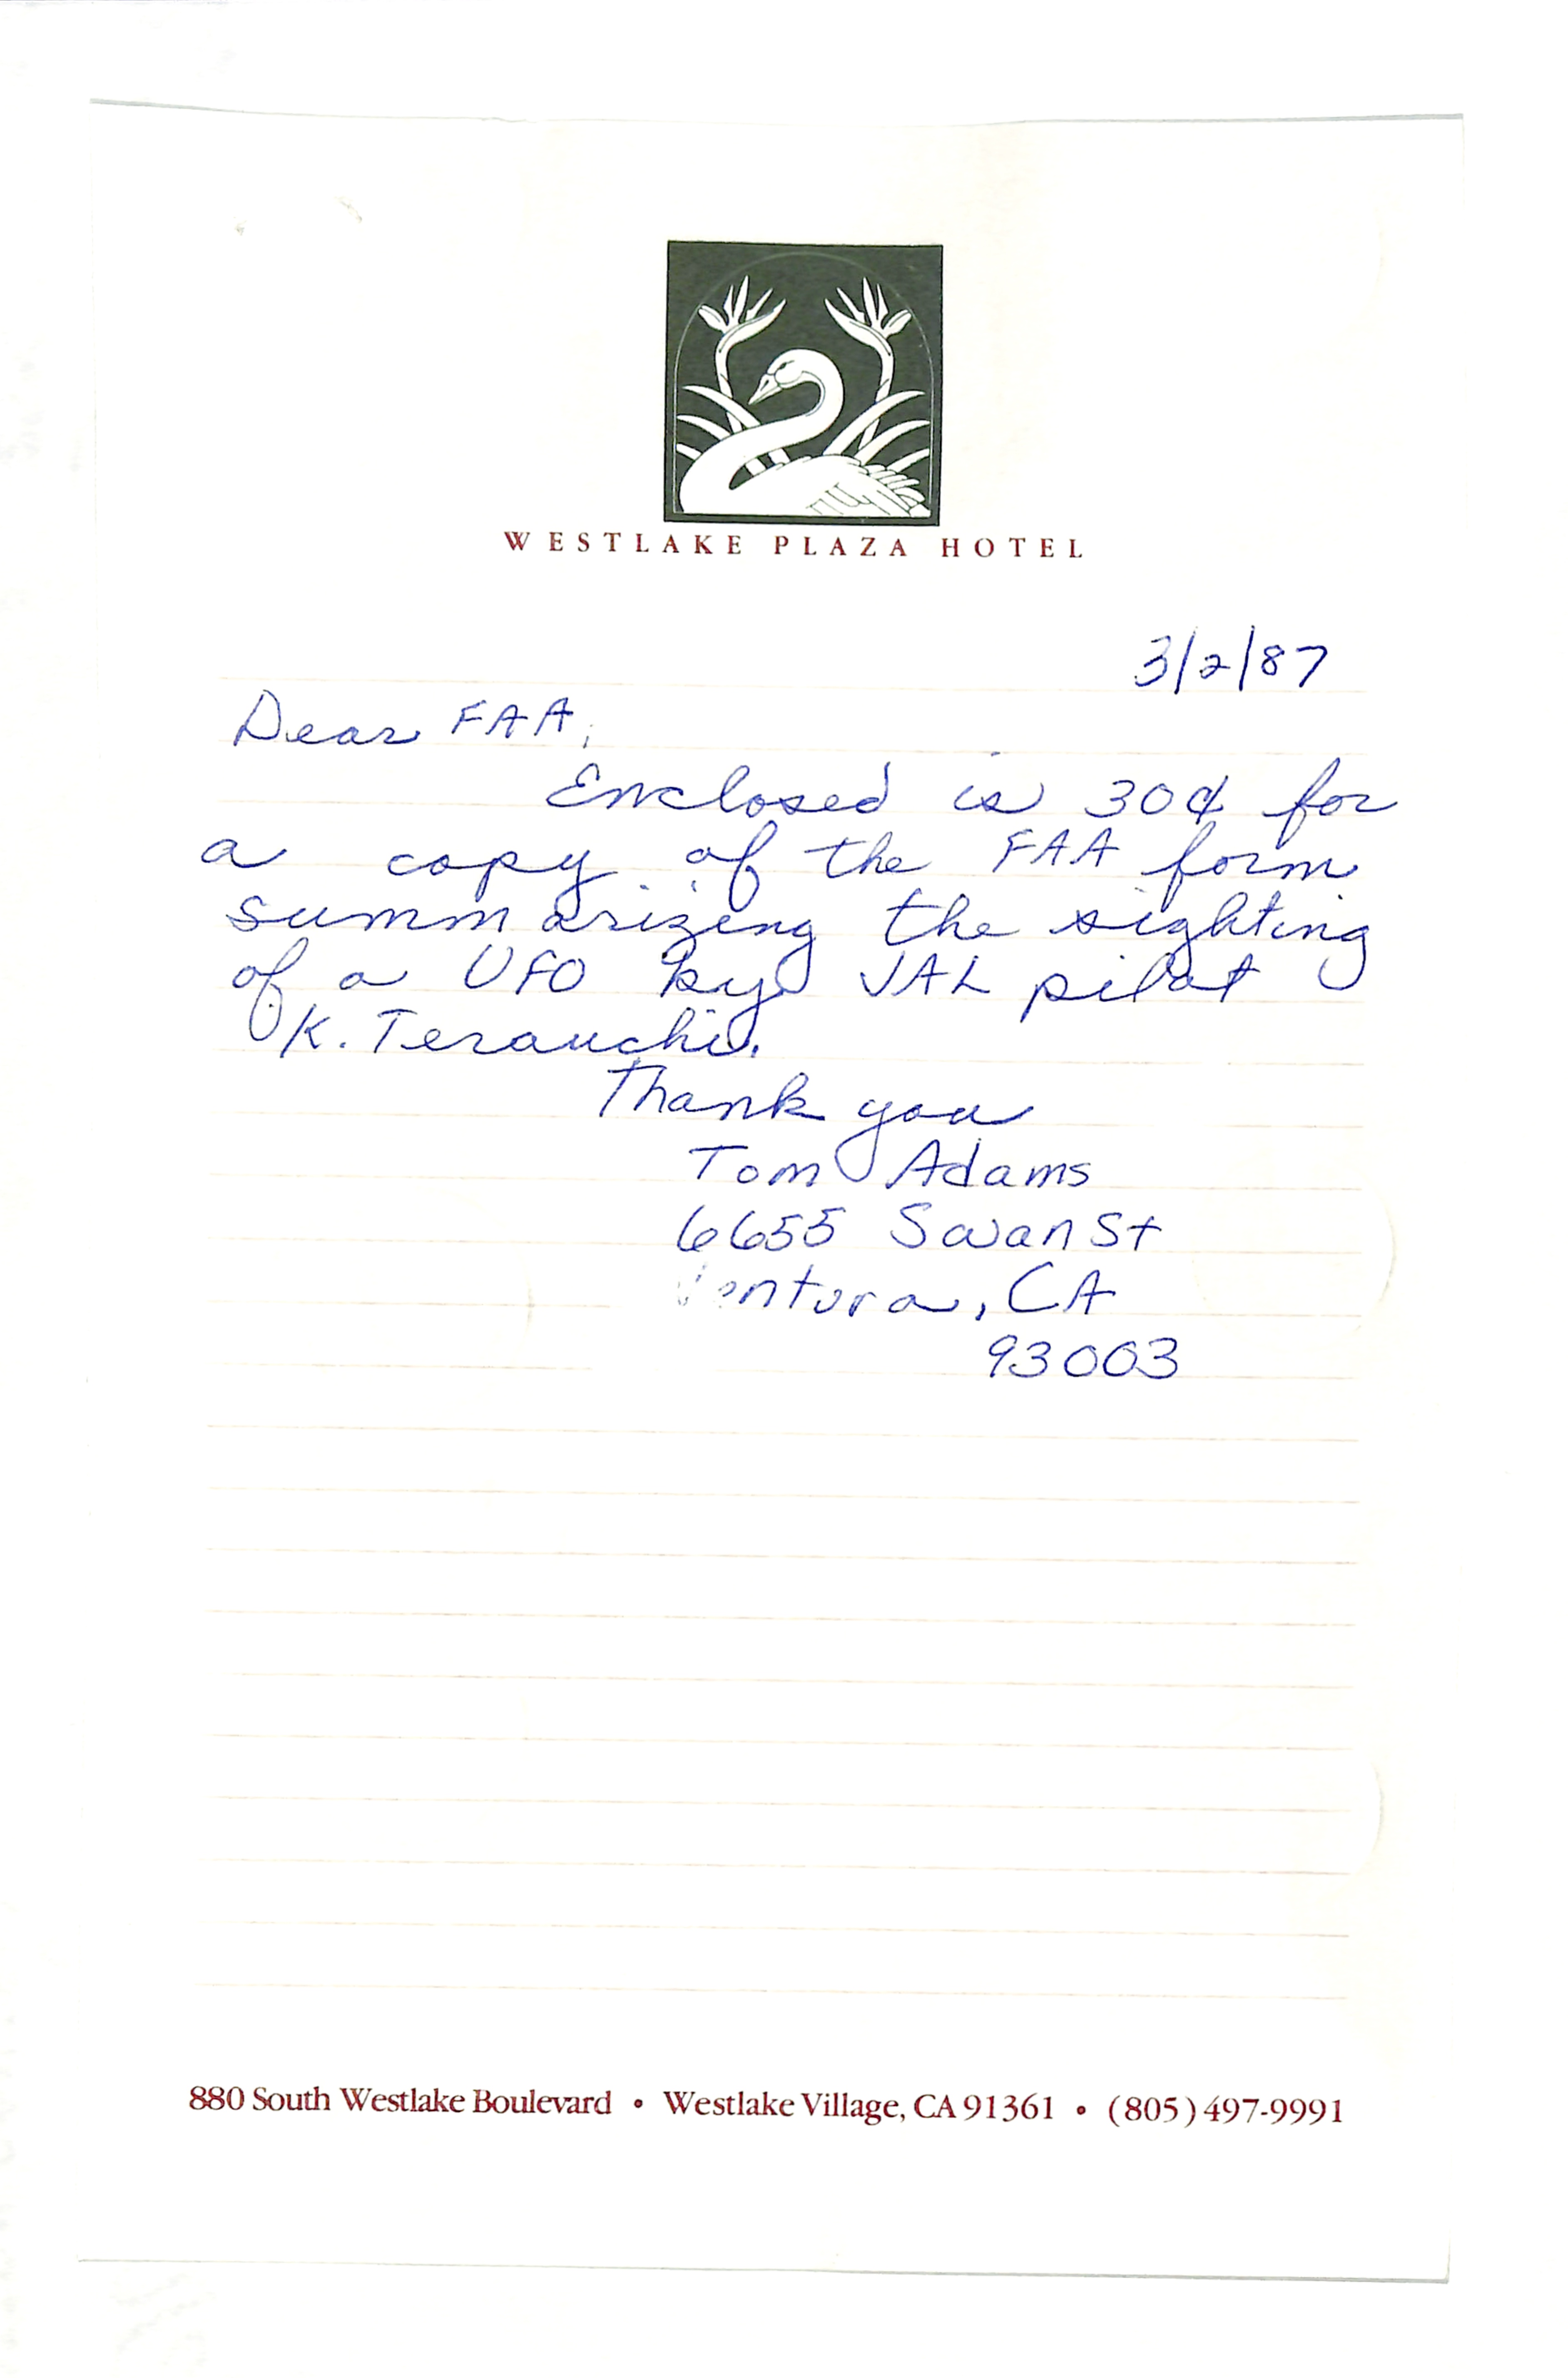 WESTLAKE PLAZA HOTEL
3/2/87
Dear FAA,
Enclosed is 30¢ for
a copy of the FAA form
summarizing the sighting
of a UFO by JAL pilot
K. Terauchi.
Thank you
Tom Adams
6655 Swan St
Ventura, CA
93003
880 South Westlake Boulevard • Westlake Village, CA 91361 • (805) 497-9991